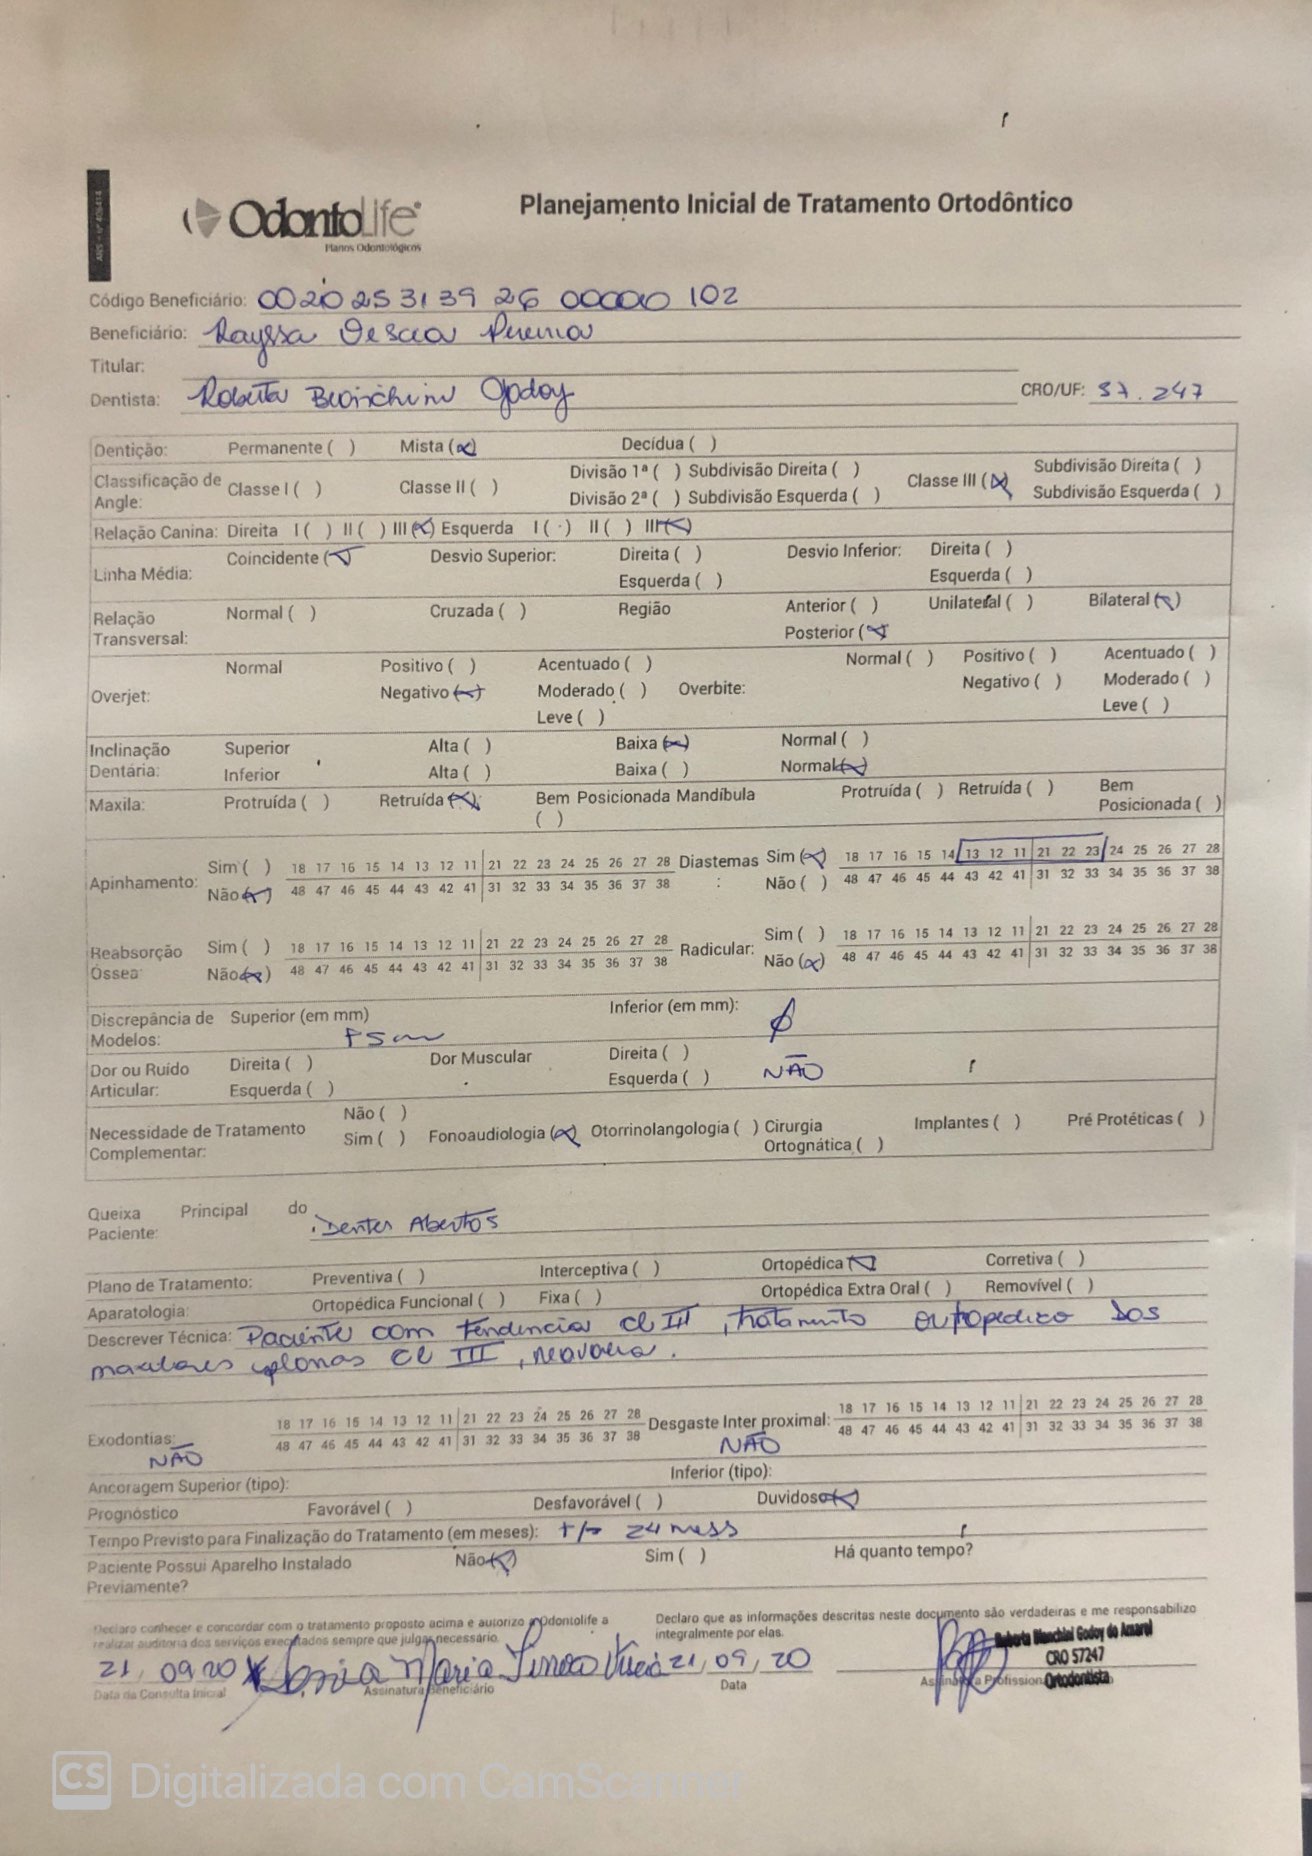 ANS - nº 406414
OdontoLife
Planos Odontológicos
Planejamento Inicial de Tratamento Ortodôntico
Código Beneficiário: 0020253139 26 00000 102
Beneficiário: Rayssa
Titular:
Dentista: Roberta Bianchini Godoy CRO/UF: 57.247
Dentição: Permanente ( ) Mista (x) Decídua ( )
Classificação de Angle: Classe I ( ) Classe II ( ) Divisão 1ª ( ) Subdivisão Direita ( ) Classe III (x) Subdivisão Direita ( )
Divisão 2ª ( ) Subdivisão Esquerda ( ) Subdivisão Esquerda ( )
Relação Canina: Direita I ( ) II ( ) III (x) Esquerda I ( ) II ( ) III (x)
Linha Média: Coincidente (x) Desvio Superior: Direita ( ) Desvio Inferior: Direita ( )
Esquerda ( ) Esquerda ( )
Relação Transversal: Normal ( ) Cruzada ( ) Região Anterior ( ) Unilateral ( ) Bilateral (x)
Posterior (x)
Overjet: Normal Positivo ( ) Acentuado ( ) Overbite: Normal ( ) Positivo ( ) Acentuado ( )
Negativo (x) Moderado ( ) Negativo ( ) Moderado ( )
Leve ( ) Leve ( )
Inclinação Dentária: Superior Alta ( ) Baixa (x) Normal ( )
Inferior Alta ( ) Baixa ( ) Normal (x)
Maxila: Protruída ( ) Retruída (x) Bem Posicionada ( ) Mandíbula Protruída ( ) Retruída ( ) Bem Posicionada ( )
Apinhamento: Sim ( ) 18 17 16 15 14 13 12 11 21 22 23 24 25 26 27 28 Diastemas: Sim (x) 18 17 16 15 14 13 12 11 21 22 23 24 25 26 27 28
Não (x) 48 47 46 45 44 43 42 41 31 32 33 34 35 36 37 38 Não ( ) 48 47 46 45 44 43 42 41 31 32 33 34 35 36 37 38
Reabsorção Óssea: Sim ( ) 18 17 16 15 14 13 12 11 21 22 23 24 25 26 27 28 Radicular: Sim ( ) 18 17 16 15 14 13 12 11 21 22 23 24 25 26 27 28
Não (x) 48 47 46 45 44 43 42 41 31 32 33 34 35 36 37 38 Não (x) 48 47 46 45 44 43 42 41 31 32 33 34 35 36 37 38
Discrepância de Modelos: Superior (em mm) Inferior (em mm): ∅
Dor ou Ruído Articular: Direita ( ) Dor Muscular Direita ( )
Esquerda ( ) Esquerda ( ) NÃO
Necessidade de Tratamento Complementar: Não ( )
Sim ( ) Fonoaudiologia (x) Otorrinolangologia ( ) Cirurgia Ortognática ( ) Implantes ( ) Pré Protéticas ( )
Queixa Principal do Paciente: Dentes Abertos
Plano de Tratamento: Preventiva ( ) Interceptiva ( ) Ortopédica (x) Corretiva ( )
Aparatologia: Ortopédica Funcional ( ) Fixa ( ) Ortopédica Extra Oral ( ) Removível ( )
Descrever Técnica: Paciente com tendencia cl III, tratamento ortopedico dos
maxilares cl III
Exodontias: NÃO 18 17 16 15 14 13 12 11 21 22 23 24 25 26 27 28 Desgaste Inter proximal: NÃO 18 17 16 15 14 13 12 11 21 22 23 24 25 26 27 28
48 47 46 45 44 43 42 41 31 32 33 34 35 36 37 38 48 47 46 45 44 43 42 41 31 32 33 34 35 36 37 38
Ancoragem Superior (tipo): Inferior (tipo):
Prognóstico Favorável ( ) Desfavorável ( ) Duvidoso (x)
Tempo Previsto para Finalização do Tratamento (em meses): +/- 24 mess
Paciente Possui Aparelho Instalado Previamente? Não (x) Sim ( ) Há quanto tempo?
Declaro conhecer e concordar com o tratamento proposto acima e autorizo a Odontolife a
realizar auditoria dos serviços executados sempre que julgar necessário.
Declaro que as informações descritas neste documento são verdadeiras e me responsabilizo
integralmente por elas.
21, 09, 20 Maria 21, 09, 20
Data da Consulta Inicial Assinatura Beneficiário Data Assinatura Profissional
Roberta Bianchini Godoy do Amaral
CRO 57247
Ortodontista
CS Digitalizada com CamScanner